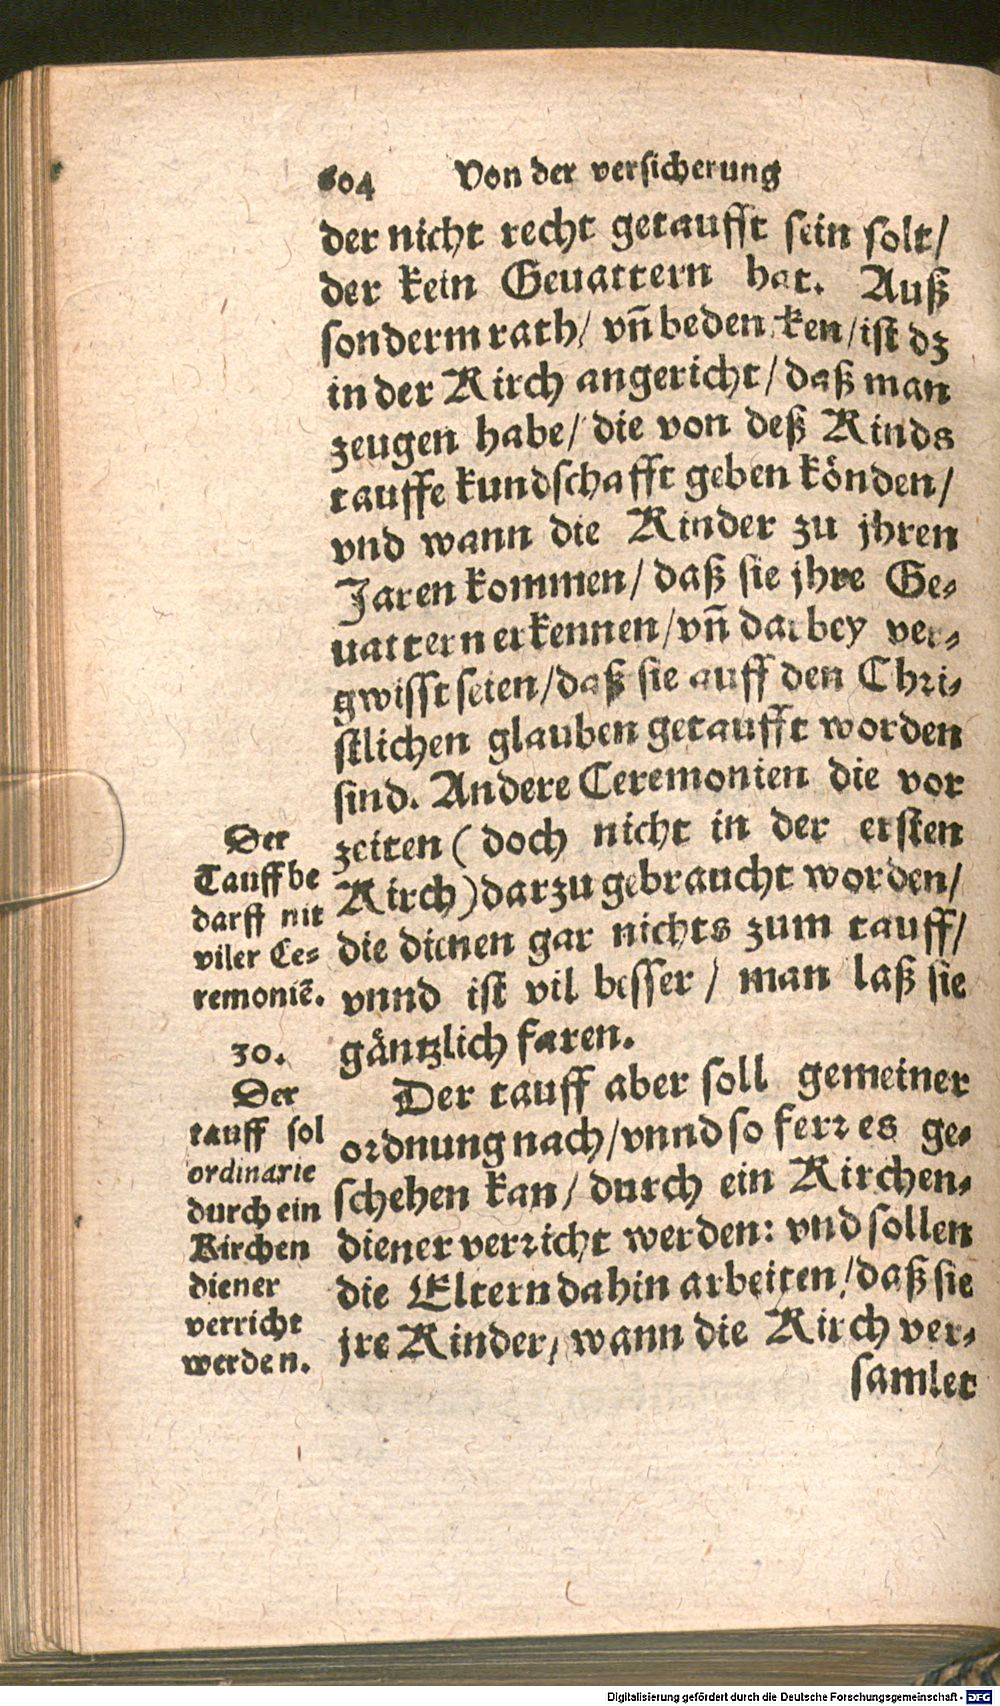 604 Von der versicherung
der nicht recht getaufft sein solt/
der kein Gevattern hat. Auß
sonderm rath/ vñ bedencken/ist dz
in der Kirch angericht/daß man
zeugen habe/ die von deß Kinds
tauffe kundschafft geben könden/
vnd wann die Kinder zu jhren
Jaren kommen/ daß sie jhre Ge-
uattern erkennen/vñ darbey ver-
gwisst seien/daß sie auff den Chri-
stlichen glauben getaufft worden
sind. Andere Ceremonien die vor
zeiten (doch nicht in der ersten
Kirch) darzu gebraucht worden/
die dienen gar nichts zum tauff/
vnnd ist vil besser/ man laß sie
gäntzlich faren.
Der tauff aber soll gemeiner
ordnung nach/vnnd so ferr es ge-
schehen kan/ durch ein Kirchen-
diener verricht werden: vnd sollen
die Eltern dahin arbeiten/daß sie
jre Kinder, wann die Kirch ver-
samlet
Der
Tauff be
darff nit
viler Ce-
remoniē.
30.
Der
tauff sol
ordinarie
durch ein
Kirchen
diener
verricht
werden.
Digitalisierung gefördert durch die Deutsche Forschungsgemeinschaft - DFG